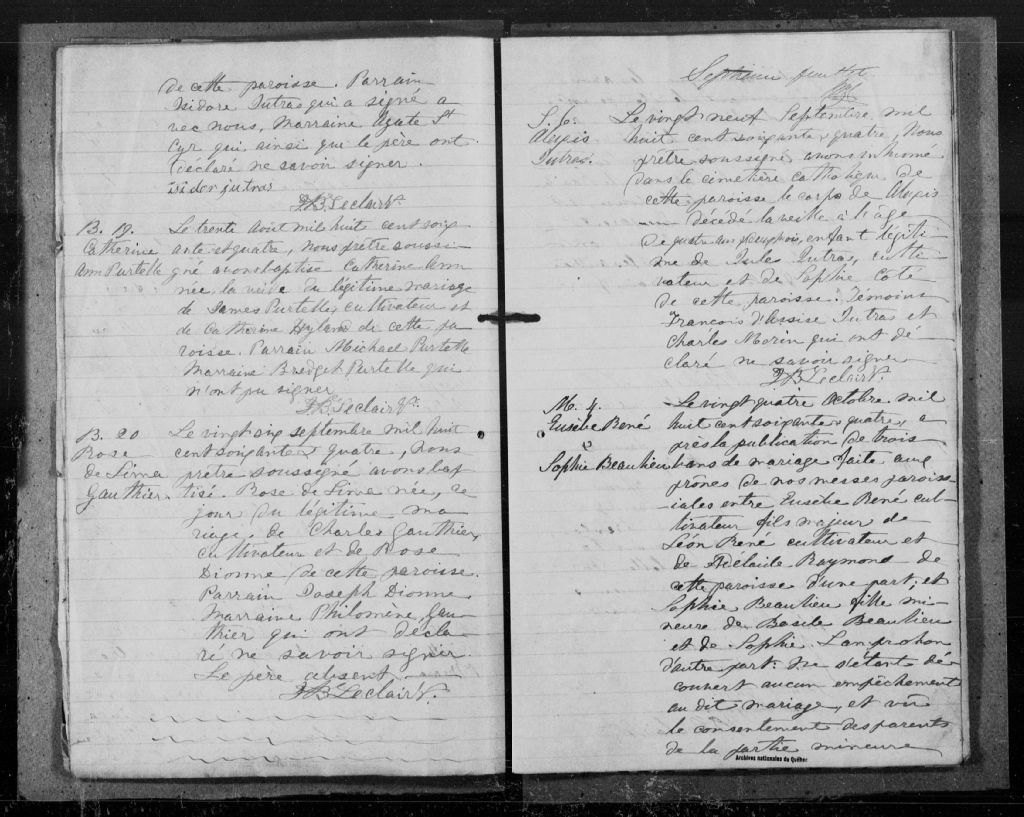 de cette paroisse. Parrain
Isidore Jutras qui a signé a
vec nous, Marraine Agate St
Cyr qui ainsi que le père ont
déclaré ne savoir signer.
isidor jutras
JBLeclair Vre
B. 19.
Catherine
Ann Purtelle
Le trente Août mil huit cent soix
ante et quatre, Nous prêtre soussi-
gné avons baptisé Catherine Ann
née, la veille du légitime mariage
de James Purtelle, cultivateur et
de Catherine Hyland de cette pa
roisse. Parrain Michael Purtelle
Marraine Bredget Purtelle qui
n'ont pu signer
JBLeclair Vre.
B. 20
Rose
de Lima
Gauthier.
Le vingt-six septembre mil huit
cent soixante & quatre, Nous
prêtre soussigné avons bap
tisé. Rose de Lima née, ce
jour du légitime ma
riage, de Charles Gauthier,
cultivateur et de Rose
Dionne de cette paroisse.
Parrain Joseph Dionne
Marraine Philomène Gau
thier qui ont décla
ré ne savoir signer
Le père absent.
JBLeclair Vre.
Septième feuillet
S. 6.
Alexis
Jutras.
Le vingt neuf Septembre mil
huit cent soixante & quatre, Nous
prêtre soussigné avons inhumé
dans le cimetière catholique de
cette paroisse le corps de Alexis
décédé la veille à l'âge
de, enfant légiti
me de Jules Jutras, culti-
vateur et de Sophie Coté
de cette paroisse. Témoins
François d'Assise Jutras et
Charles Morin qui ont dé
claré ne savoir signer
JBLeclair Vre.
M. 4.
Eusèbe René
&
Sophie Beaulieu
Le vingt quatre Octobre mil
huit cent soixante & quatre, a
près la publication de trois
bans de mariage faite aux
prônes de nos messes parois-
siales entre Eusèbe René cul-
tivateur fils majeur de
Léon René cultivateur et
de Adélaide Raymond de
cette paroisse d'une part; et
Sophie Beaulieu fille mi-
neure de Basile Beaulieu
et de Sophie Lanprohon
d'autre part: ne s'étant dé-
couvert aucun empêchement
au dit mariage, et vû
le consentement des parents
de la partie mineure
Archives nationales du Québec